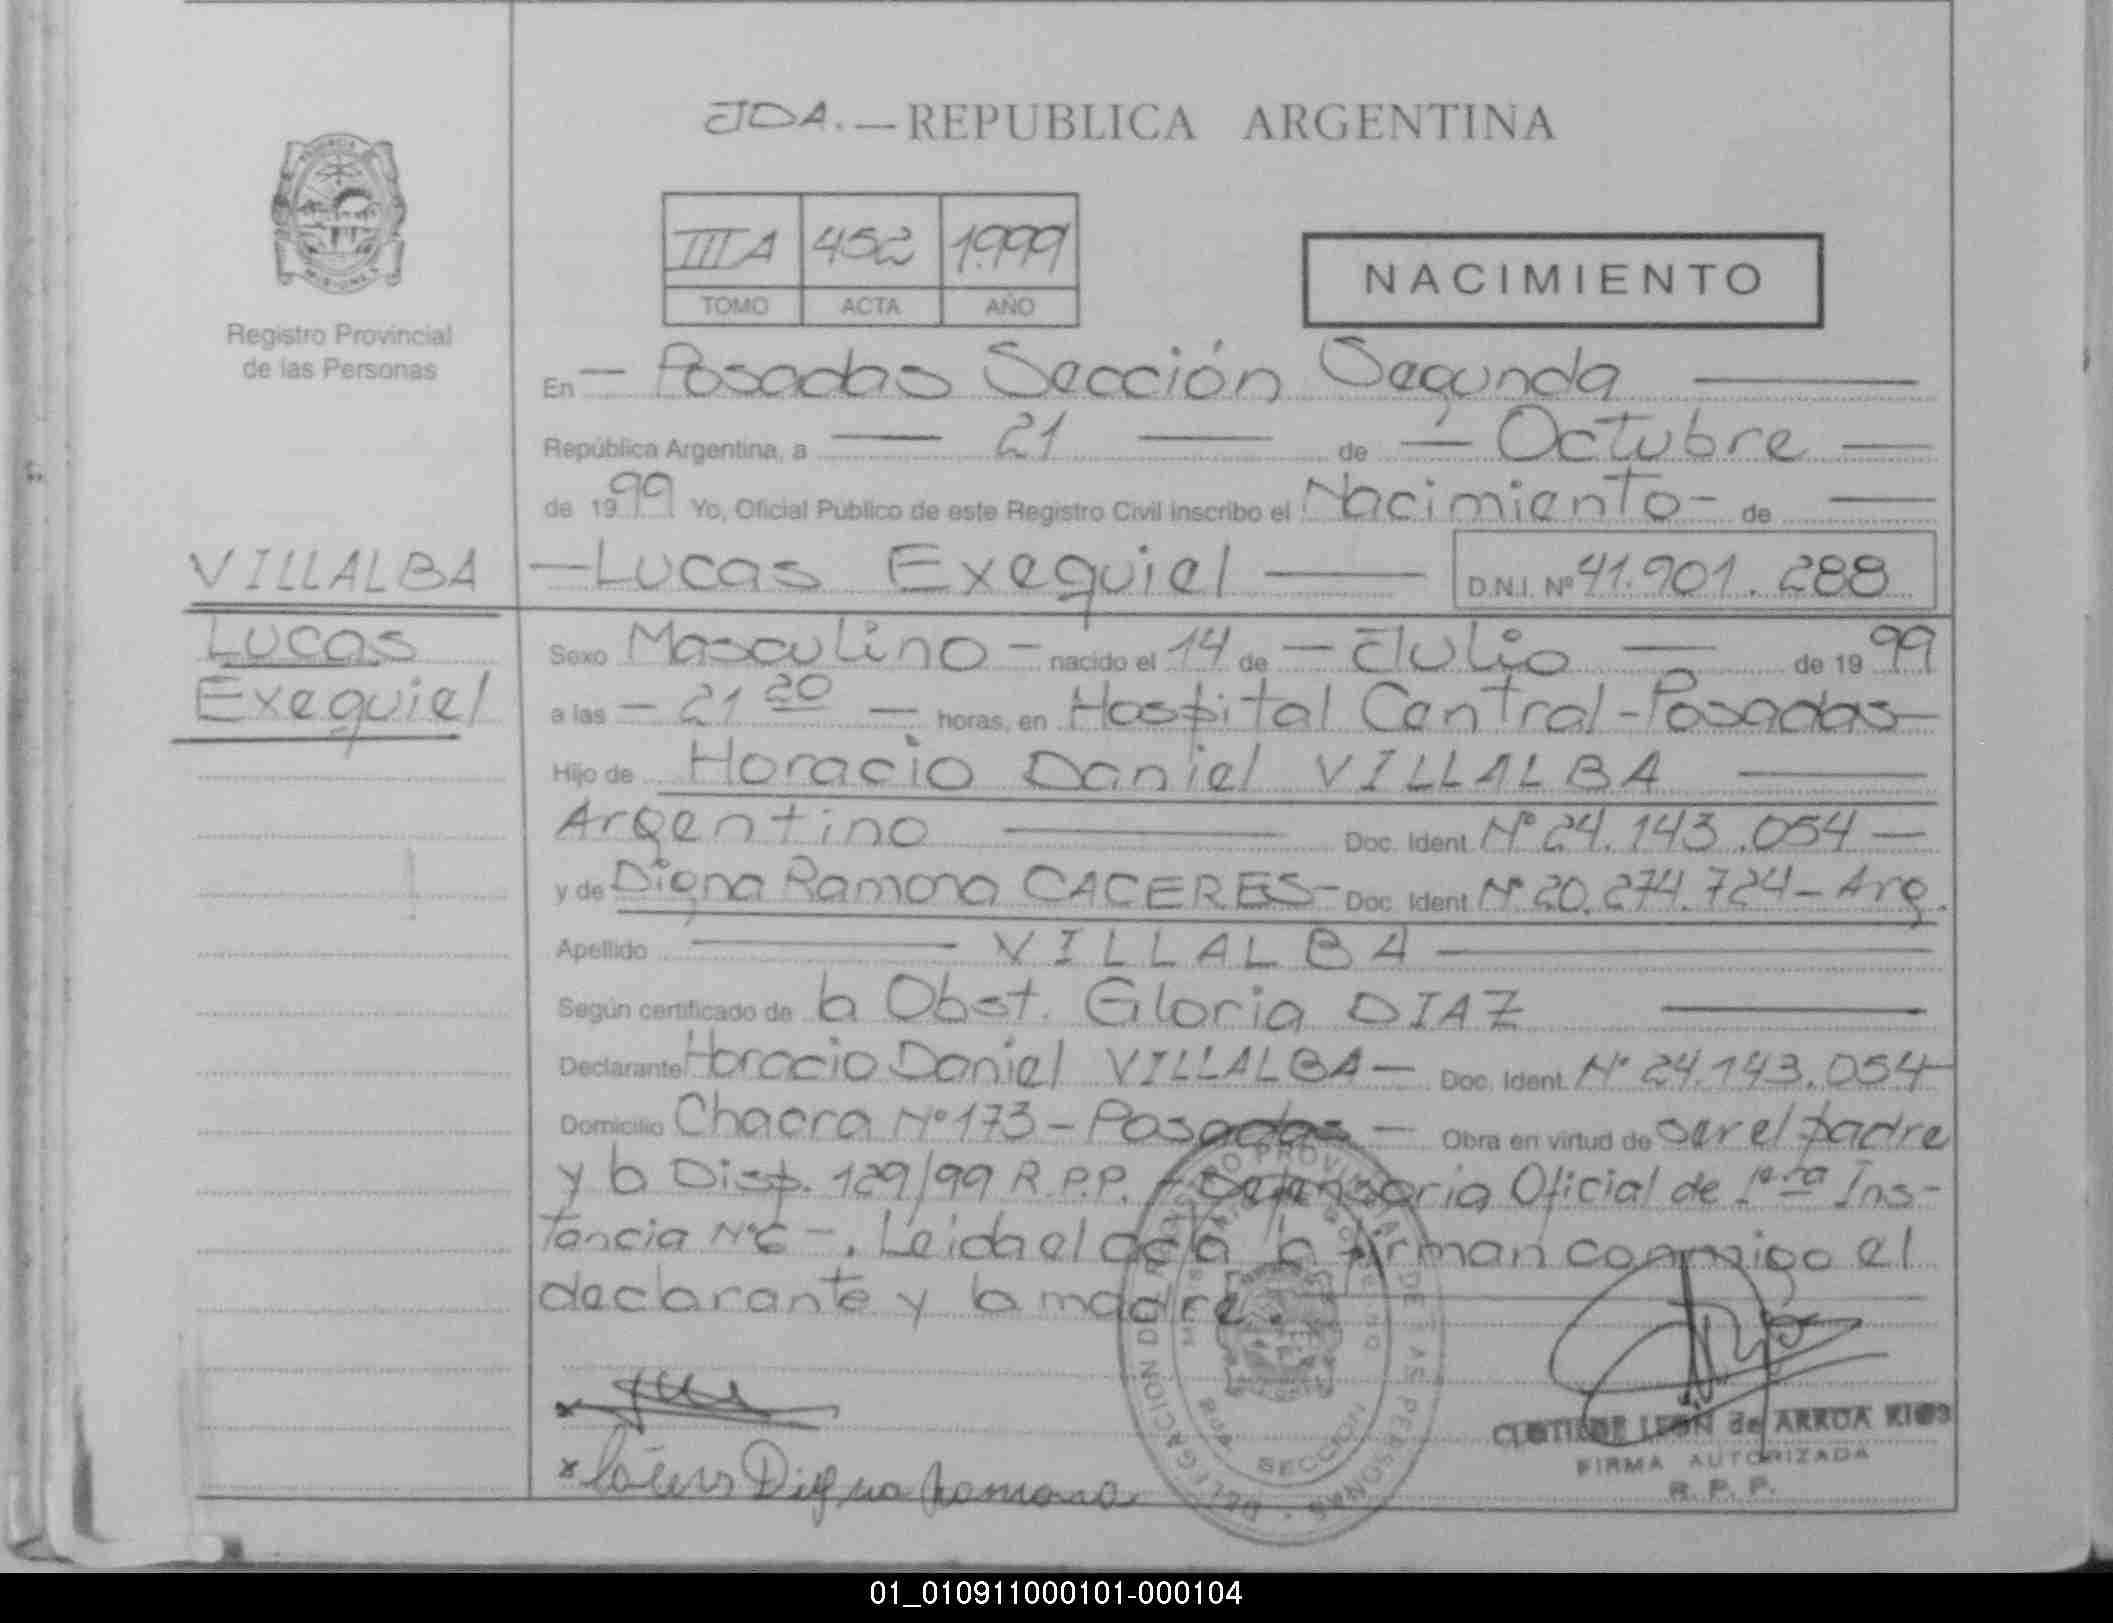 JDA.— REPUBLICA ARGENTINA
III A 452 1.999
TOMO ACTA AÑO
NACIMIENTO
Registro Provincial
de las Personas
En — Posadas Sección Segunda —
República Argentina, a — 21 — de — Octubre —
de 1999 Yo, Oficial Público de este Registro Civil inscribo el Nacimiento - de —
VILLALBA — Lucas Exequiel — D.N.I. Nº 41.901.288
Lucas
Exequiel
Sexo Masculino — nacido el 14 de — Julio — de 1999
a las — 21 20 — horas, en Hospital Central - Posadas —
Hijo de Horacio Daniel VILLALBA —
Argentino — Doc. Ident. Nº 24.143.054 —
y de Digna Ramona CACERES - Doc. Ident. Nº 20.274.724 - Arg.
Apellido — VILLALBA —
Según certificado de la Obst. Gloria DIAZ —
Declarante Horacio Daniel VILLALBA — Doc. Ident. Nº 24.143.054 —
Domicilio Chacra Nº 173 - Posadas — Obra en virtud de ser el padre
y la Disp. 129/99 R.P.P. Defensoria Oficial de 1era Ins-
tancia Nº6 -. Leida el acta la firman conmigo el
declarante y la madre.
DELEGACION DE REGISTRO PROVINCIAL DE LAS PERSONAS
SECCION
CLOTILDE LEON de ARRUA RIOS
FIRMA AUTORIZADA
R. P. P.
Digna Ramona
01_010911000101-000104